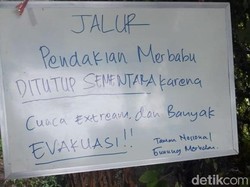 JALUR
Pendakian Merbabu
DITUTUP SEMENTARA Karena
Cuaca Extream dan Banyak
EVAKUASI!!
Taman Nasional
Gunung Merbabu
detikcom